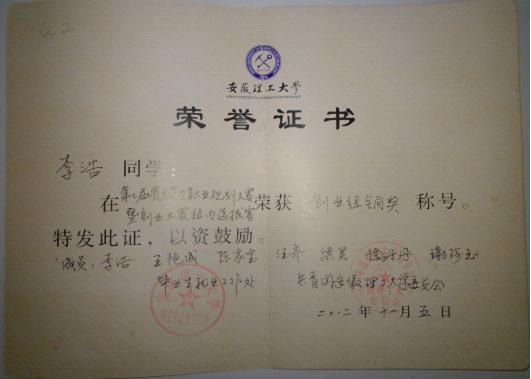 安徽理工大学
荣誉证书
李浩 同学:
第七届省大学生职业规划大赛
在 暨创业大赛校内选拔赛 荣获 创业组铜奖 称号。
特发此证,以资鼓励。
成员:李浩 王艳成 陈家宝 汪齐
毕业生就业工作处 共青团安徽理工大学委员会
二〇一二年十一月五日